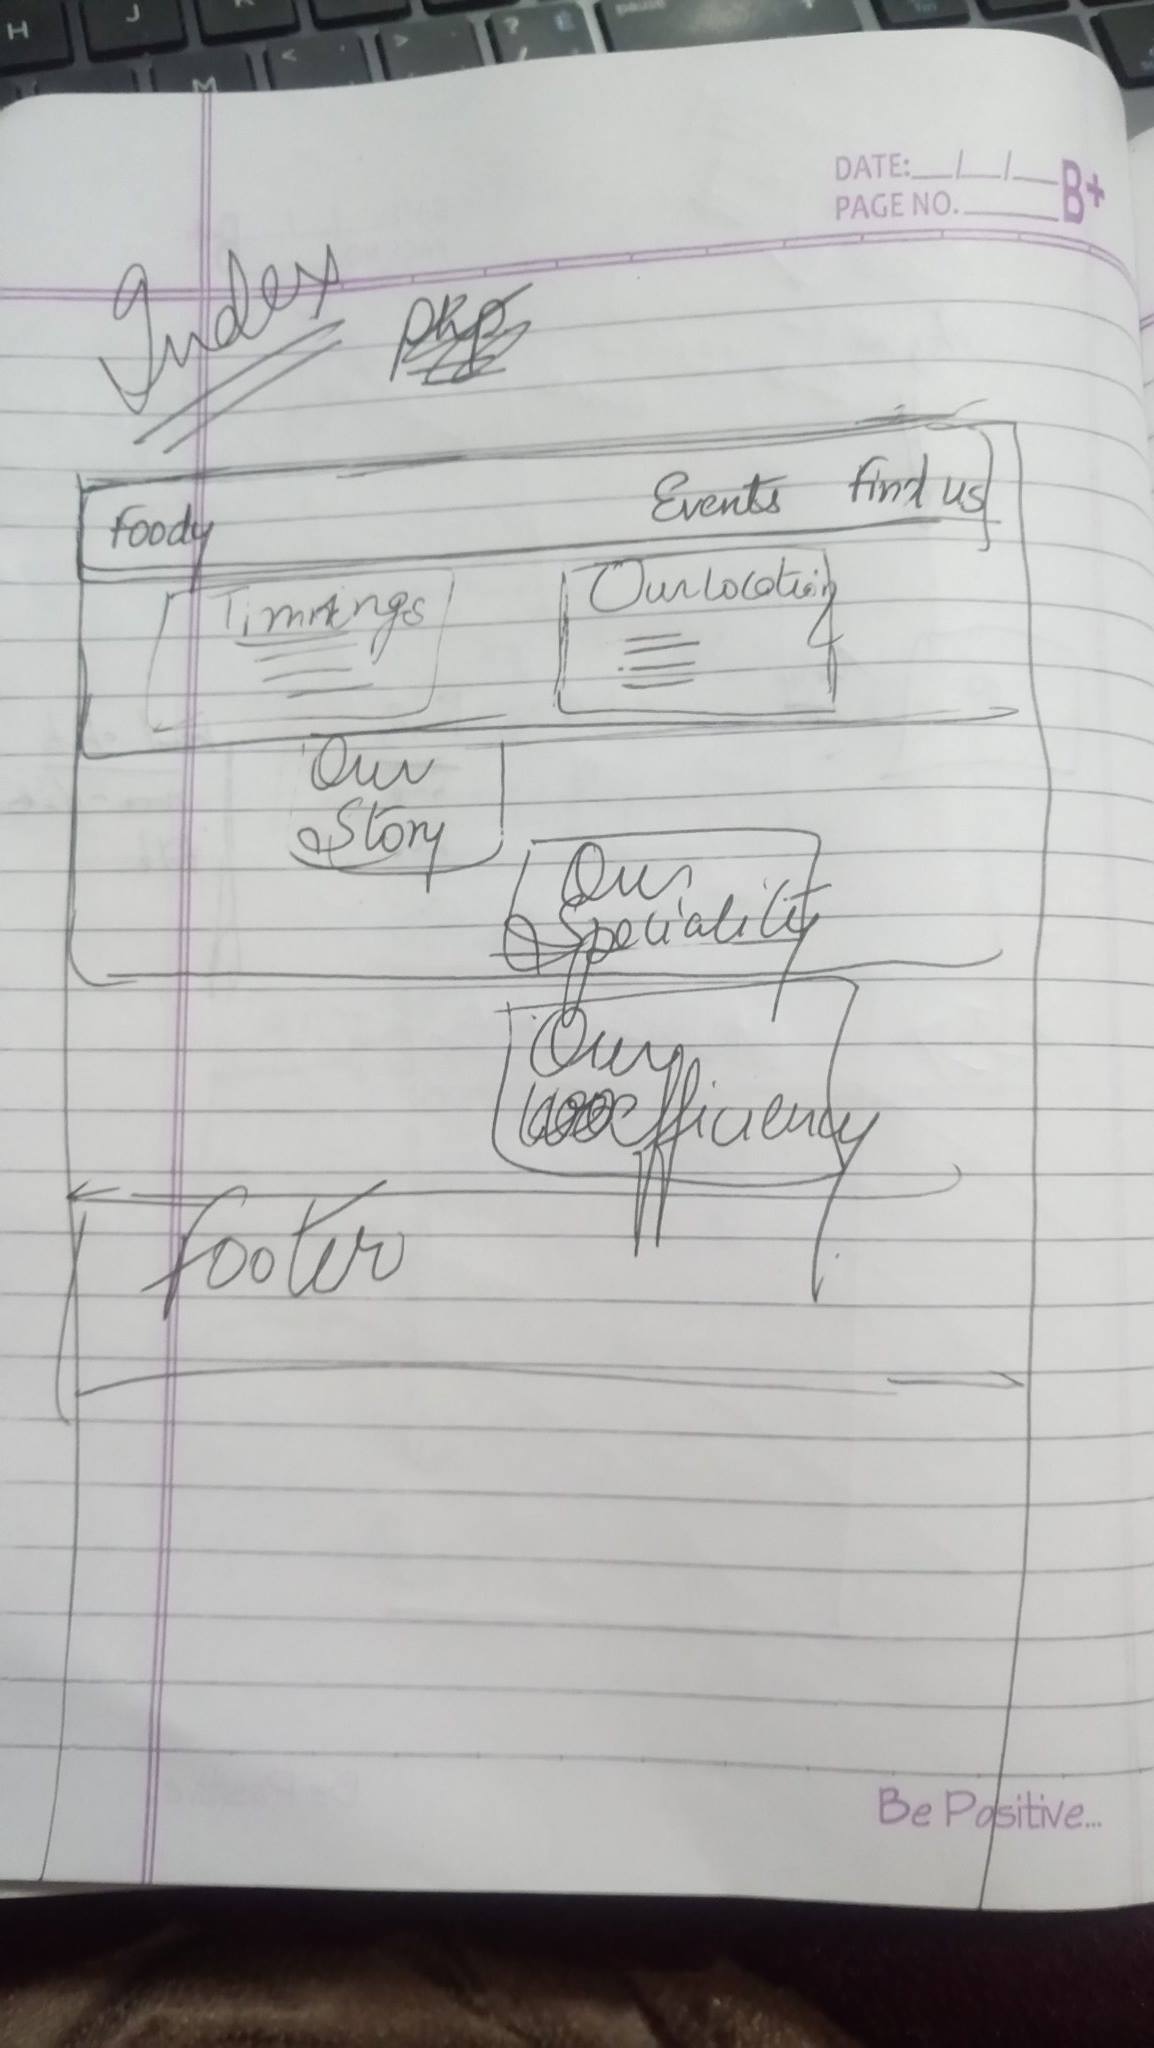 H J K
< > ? pause
M
DATE:__/__/__ B+
PAGE NO.
Index
php
Foody Events find us
Timings Our location
Our
Story
Our
Speciality
Our
Efficiency
Footer
Be Positive...